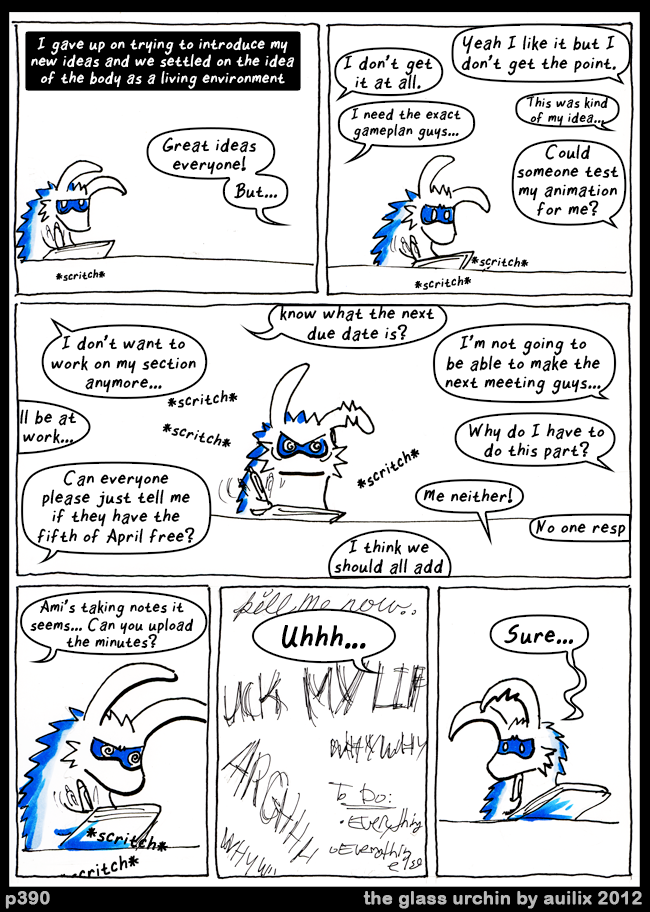 I gave up on trying to introduce my
new ideas and we settled on the idea
of the body as a living environment
Great ideas
everyone!
But...
*scritch*
Yeah I like it but I
don't get the point.
I don't get
it at all.
This was kind
of my idea...
I need the exact
gameplan guys...
Could
someone test
my animation
for me?
*scritch*
*scritch*
know what the next
due date is?
I don't want to
work on my section
anymore...
I'm not going to
be able to make the
next meeting guys...
*scritch*
*scritch*
ll be at
work...
Why do I have to
do this part?
*scritch*
Can everyone
please just tell me
if they have the
fifth of April free?
Me neither!
No one resp
I think we
should all add
Ami's taking notes it
seems... Can you upload
the minutes?
*scritch*
critch*
kill me now..
Uhhh...
UCK MY LIF
WHYWHY
ARGHHH
To Do:
• Everything
• Everything
else
WHYW
Sure...
p390
the glass urchin by auilix 2012